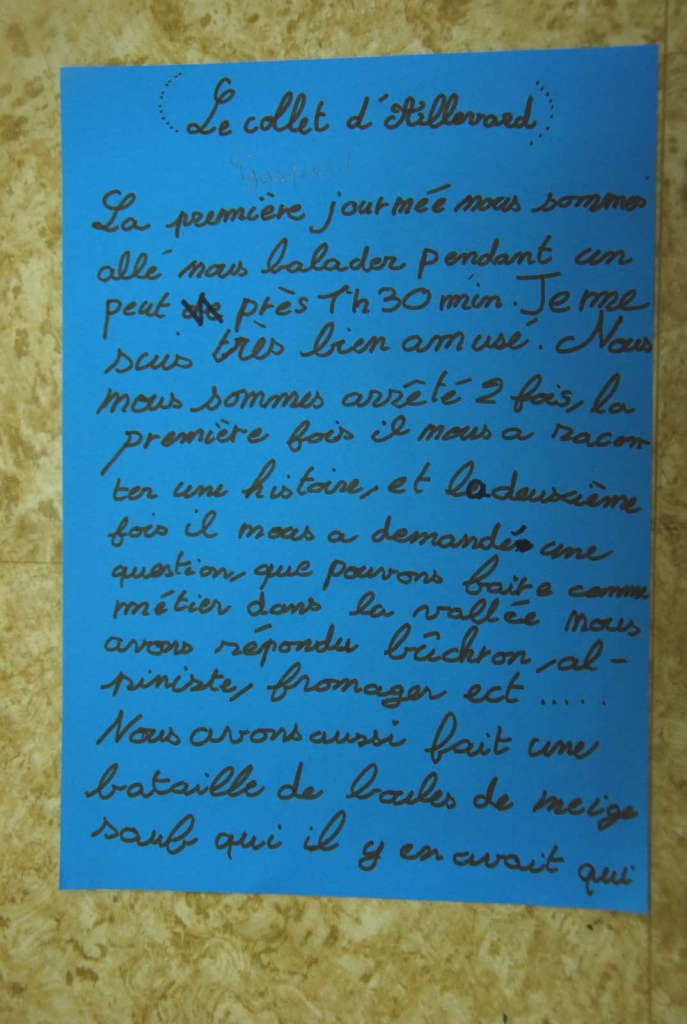 Le collet d'Aillevard
Gaspard
La première journéé nous sommes
allé nous balader pendant un
peut près 1h30 min. Je me
suis très bien amusé. Nous
nous sommes arrêté 2 fois, la
première fois il nous a racon-
ter une histoire, et la deuxième
fois il nous a demandé une
question, que pouvons faire comme
métier dans la vallée nous
avons répondu bûchron, al-
piniste, fromager ect .....
Nous avons aussi fait une
bataille de boules de neige
sauf qui il y en avait qui